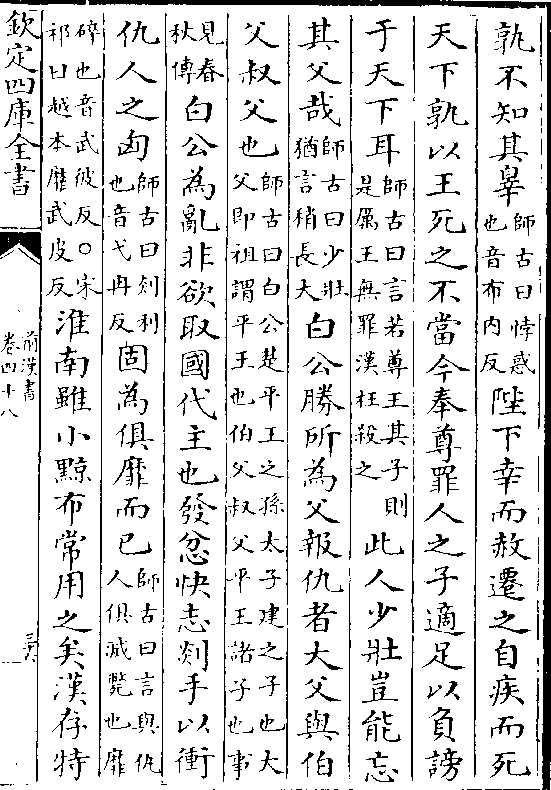 孰不知其辠師古曰悖惑也音布内反陛下幸而赦遷之自疾而死
天下孰以王死之不當今奉尊罪人之子適足以負謗
于天下耳師古曰言若尊王其子則是厲王無罪漢枉殺之此人少壯豈能忘
其父哉師古曰少壯猶言稍長大白公勝所為父報仇者大父與伯
父叔父也師古曰白公楚平王之孫太子建之子也大父即祖謂平王也伯父叔父平王諸子也事
見春秋傳白公為亂非欲取國代主也發忿快志剡手以衝
仇人之匈師古曰剡利也音弋冉反固為俱靡而已師古曰言與仇人俱滅斃也靡
碎也音武彼反○宋祁曰越本靡武皮反淮南雖小黥布常用之矣漢存特
欽定四庫全書
前漢書
卷四十八
三六